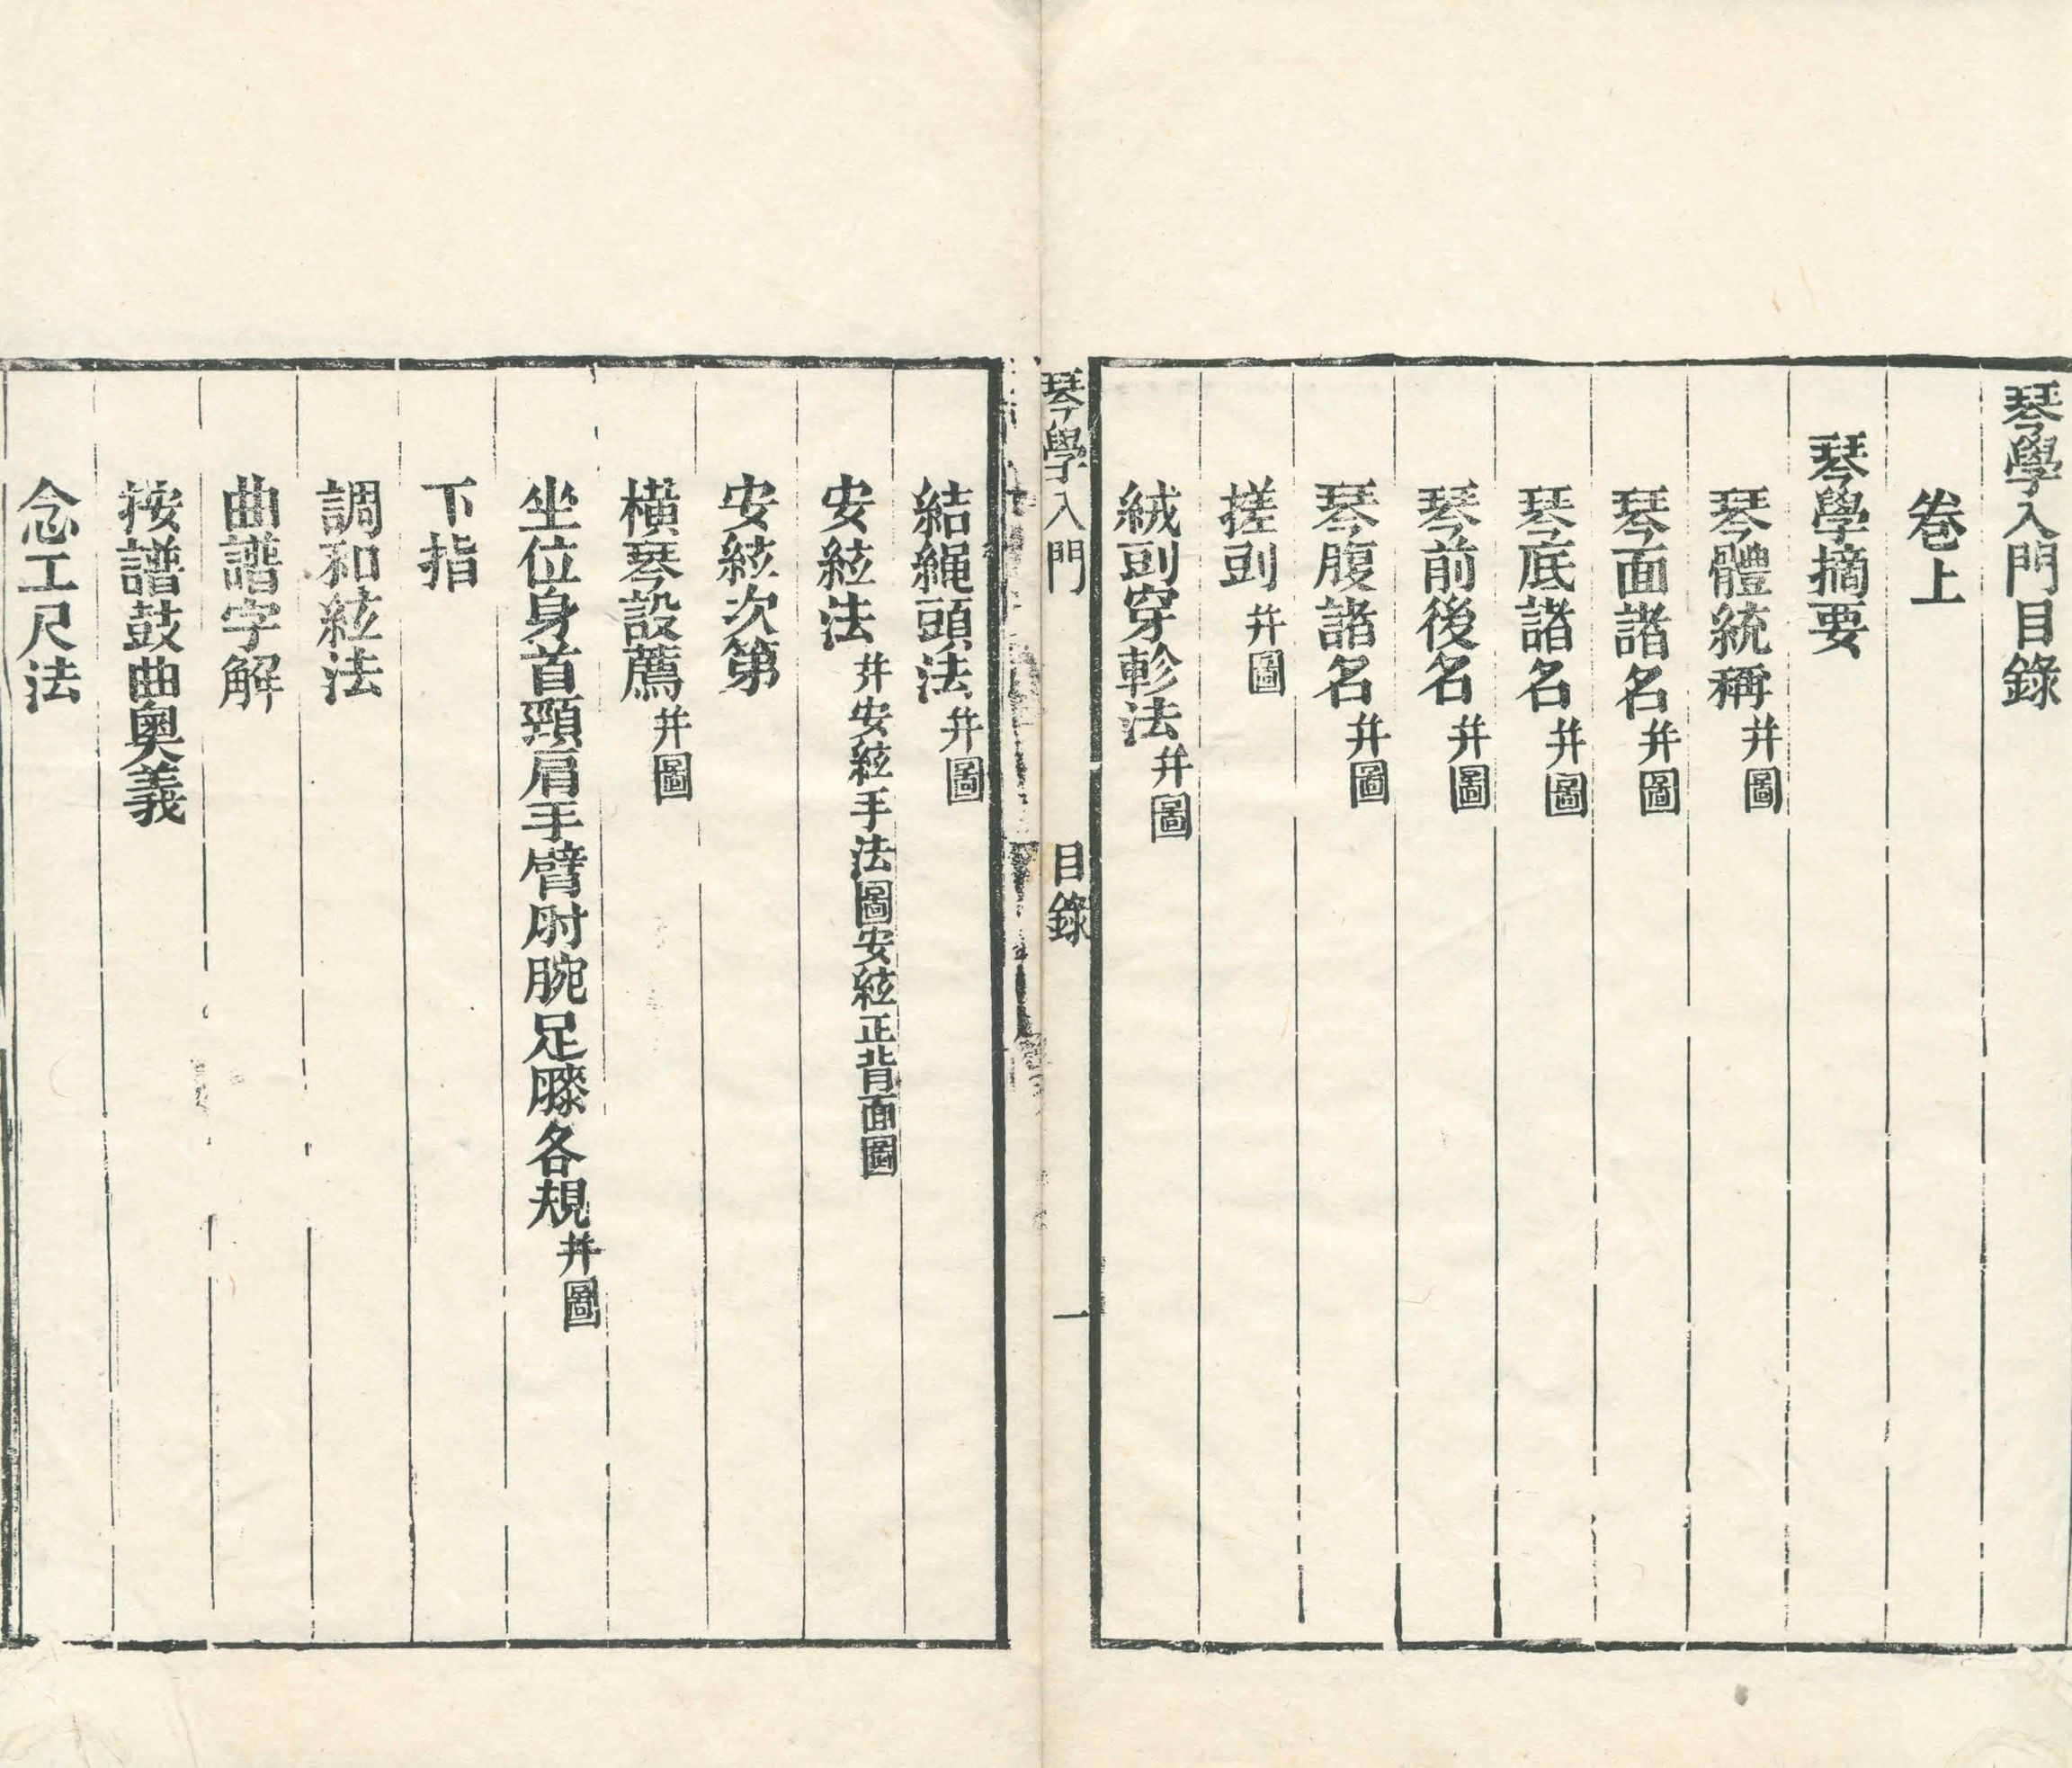 琴學入門目錄
卷上
琴學摘要
琴體統稱并圖
琴面諸名并圖
琴底諸名并圖
琴前後名并圖
琴腹諸名并圖
搓剅并圖
絨剅穿軫法并圖
琴學入門 目錄 一
結繩頭法并圖
安絃法并安絃手法圖安絃正背面圖
安絃次第
橫琴設薦并圖
坐位身首頸肩手臂肘腕足膝各規并圖
下指
調和絃法
曲譜字解
按譜鼓曲奧義
念工尺法